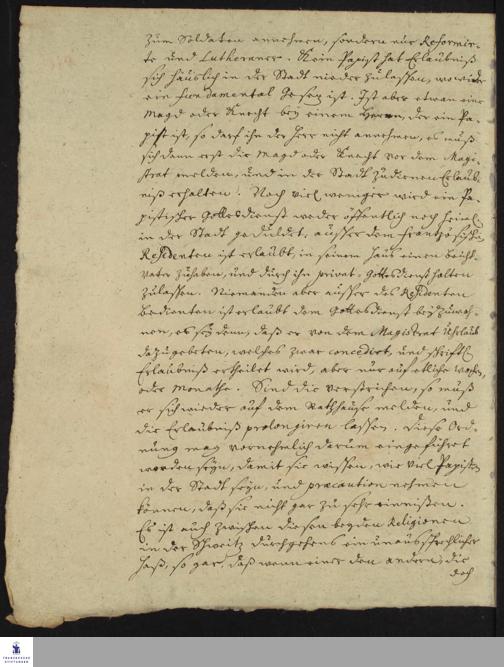 zum Soldaten annehmen, sondern nur Reformir-
te und Lutheraner. Kein Papist hat Erlaubniß
sich häuslich in der Stadt nieder zulassen, wowieder
ein fundamental Gesetz ist. Ist aber etwan eine
Magd oder Knecht bey einem Herrn, der ein Pa-
pist ist, so darf ihn der Herr nicht annehmen, es muß
sich dann erst die Magd oder Knecht vor dem Magi-
strat melden, und in der Stadt zu dienen Erlaub-
niß erhalten. Noch viel weniger wird ein Pa-
pistischer Gottesdienst weder öffentlich noch heiml.
in der Stadt geduldet, ausser dem Frantzösischen
Residenten ist erlaubt, in seinem Haus einen beicht-
Vater zuhaben, und durch ihn privat-Gottesdienst halten
zulassen. Niemanden aber ausser des Residenten
Bedienten ist erlaubt dem Gottesdienst beyzuwoh-
nen, es sey denn, daß er von dem Magistrat Uhrlaub
dazu gebeten, welches zwar concedirt, und schriftl.
Erlaubniß ertheilet wird, aber nur auf etliche Wochen,
oder Monathe. Sind die verstrichen, so muß
er sich wieder auf dem Rathhause melden, und
die Erlaubniß prolongiren lassen. Diese Ord-
nung mag vornehmlich darum eingeführet
worden seyn, damit sie wissen, wie viel Papisten
in der Stadt seyn, und precaution nehmen
können, daß sie nicht gar zu sehr einnisten.
Es ist auch zwischen diesen beyden Religionen
in der Schweitz durchgehens ein unaussprechlicher
Haß, so gar, daß wenn einer den andern, die
doch
FRANCKESCHE
STIFTUNGEN